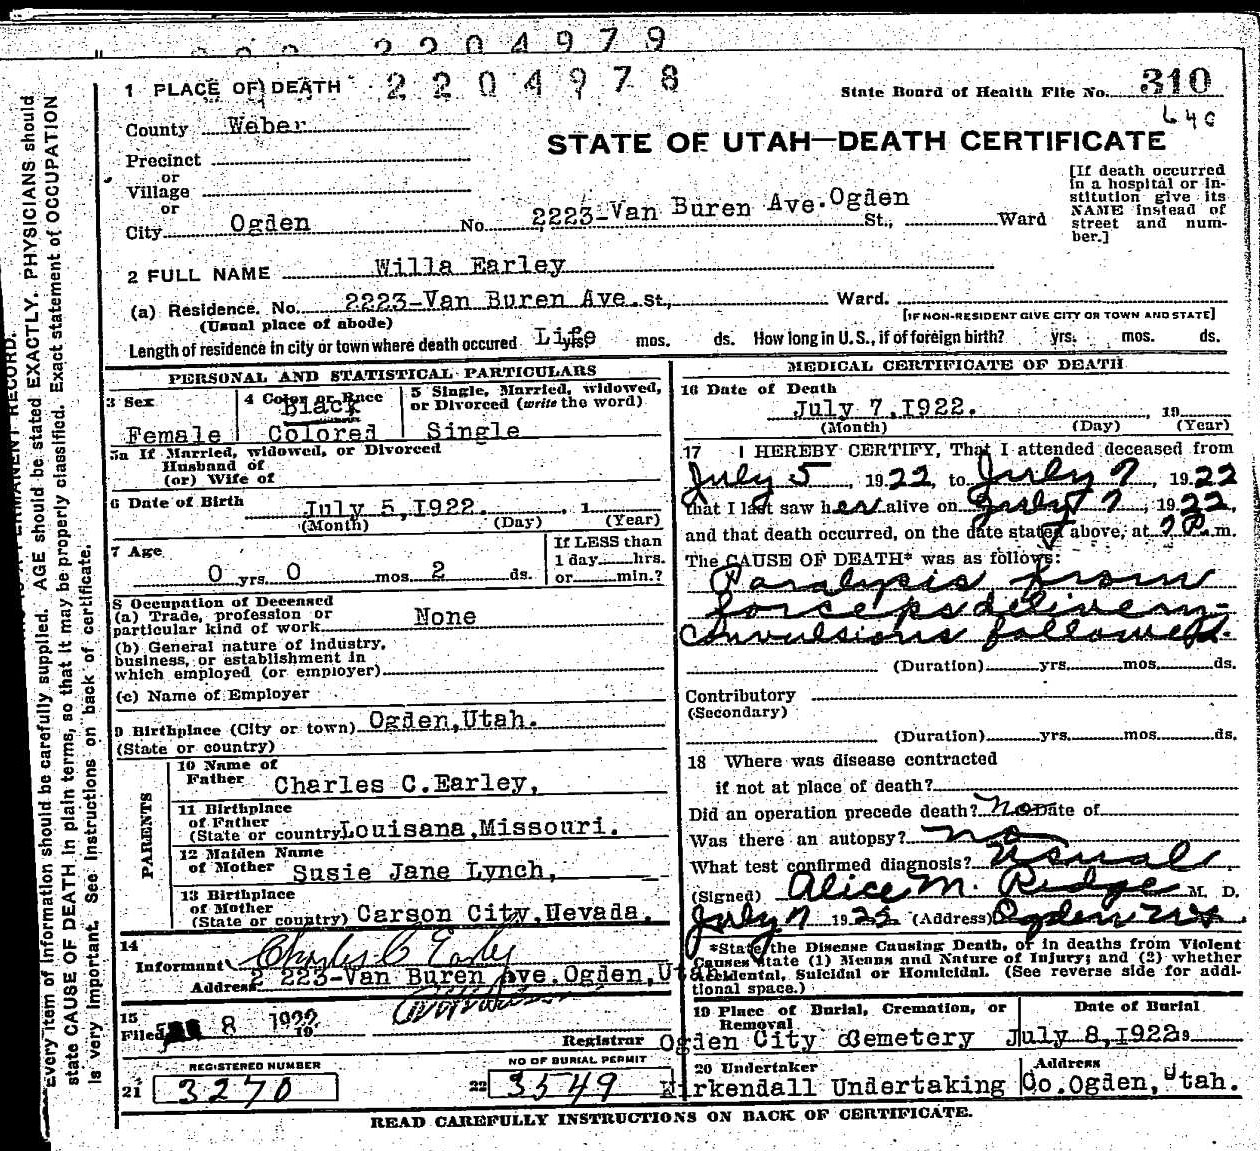 2204979
1 PLACE OF DEATH 2204978
State Board of Health File No. 310
County Weber
STATE OF UTAH—DEATH CERTIFICATE
Precinct
or
Village
or
City Ogden No. 2223-Van Buren Ave. Ogden St., Ward
[If death occurred
in a hospital or in-
stitution give its
NAME instead of
street and num-
ber.]
2 FULL NAME Willa Earley
(a) Residence. No. 2223-Van Buren Ave. St., Ward.
(Usual place of abode)
[IF NON-RESIDENT GIVE CITY OR TOWN AND STATE]
Length of residence in city or town where death occured Life yrs. mos. ds. How long in U. S., if of foreign birth? yrs. mos. ds.
PERSONAL AND STATISTICAL PARTICULARS
3 Sex
Female
4 Color or Race
Black
Colored
5 Single, Married, widowed,
or Divorced (write the word)
Single
5a If Married, widowed, or Divorced
Husband of
(or) Wife of
6 Date of Birth July 5,1922. , 1
(Month) (Day) (Year)
7 Age
0 yrs. 0 mos. 2 ds.
If LESS than
1 day hrs.
or min.?
8 Occupation of Deceased
(a) Trade, profession or
particular kind of work None
(b) General nature of industry,
business, or establishment in
which employed (or employer)
(c) Name of Employer
9 Birthplace (City or town) Ogden,Utah.
(State or country)
PARENTS
10 Name of
Father Charles C.Earley,
11 Birthplace
of Father
(State or country) Louisana,Missouri.
12 Maiden Name
of Mother Susie Jane Lynch,
13 Birthplace
of Mother
(State or country) Carson City,Nevada.
14
Informant Charles C Earley
Address 2223-Van Buren Ave.Ogden,Utah
15
Filed 8 1922 19
Registrar
REGISTERED NUMBER
21 3270
NO OF BURIAL PERMIT
22 3549
MEDICAL CERTIFICATE OF DEATH
16 Date of Death
July 7,1922. , 19
(Month) (Day) (Year)
17 I HEREBY CERTIFY, That I attended deceased from
July 5, 1922, to July 7, 1922
that I last saw her alive on July 7, 1922,
and that death occurred, on the date stated above, at 7 P. m.
The CAUSE OF DEATH* was as follows:
Paralysis from
forceps delivery-
convulsions followed.
(Duration) yrs. mos. ds.
Contributory
(Secondary)
(Duration) yrs. mos. ds.
18 Where was disease contracted
if not at place of death?
Did an operation precede death? no Date of
Was there an autopsy? no
What test confirmed diagnosis? usual
(Signed) Alice M. Ridge M. D.
July 7 1922 (Address) Ogden Ut
*State the Disease Causing Death, or in deaths from Violent
Causes state (1) Means and Nature of Injury; and (2) whether
Accidental, Suicidal or Homicidal. (See reverse side for addi-
tional space.)
19 Place of Burial, Cremation, or
Removal
Ogden City Cemetery
Date of Burial
July 8,1922 19
20 Undertaker
Kirkendall Undertaking Co.
Address
Ogden,Utah.
READ CAREFULLY INSTRUCTIONS ON BACK OF CERTIFICATE.
Every item of information should be carefully supplied. AGE should be stated EXACTLY. PHYSICIANS should
state CAUSE OF DEATH in plain terms, so that it may be properly classified. Exact statement of OCCUPATION
is very important. See instructions on back of certificate.
PERMANENT RECORD.